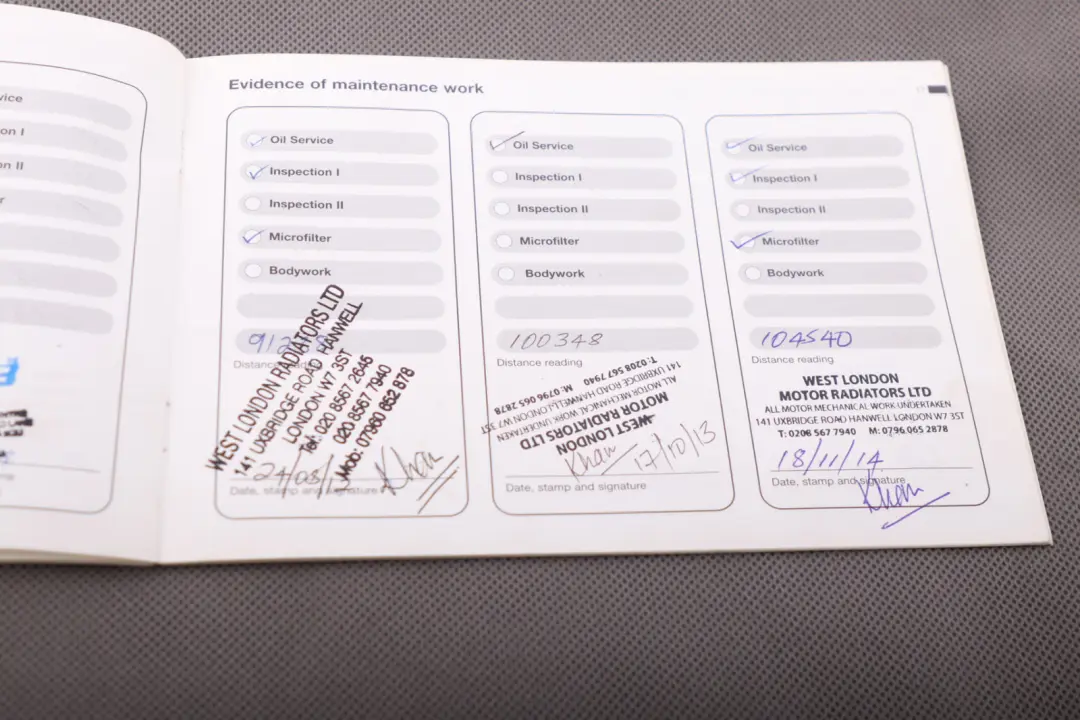 vice
on I
n II
r
Evidence of maintenance work
Oil Service
Inspection I
Inspection II
Microfilter
Bodywork
Distance reading
WEST LONDON RADIATORS LTD
141 UXBRIDGE ROAD HANWELL
LONDON W7 3ST
Tel: 020 8567 2646
020 8567 7940
Mob: 07960 652 878
24/03/13 Khan
Date, stamp and signature
Oil Service
Inspection I
Inspection II
Microfilter
Bodywork
100348
Distance reading
WEST LONDON
MOTOR RADIATORS LTD
ALL MOTOR MECHANICAL WORK UNDERTAKEN
141 UXBRIDGE ROAD HANWELL LONDON W7 3ST
T: 0208 567 7940 M: 0796 065 2878
Khan 17/10/13
Date, stamp and signature
Oil Service
Inspection I
Inspection II
Microfilter
Bodywork
104540
Distance reading
WEST LONDON
MOTOR RADIATORS LTD
ALL MOTOR MECHANICAL WORK UNDERTAKEN
141 UXBRIDGE ROAD HANWELL LONDON W7 3ST
T: 0208 567 7940 M: 0796 065 2878
18/11/14
Date, stamp and signature
Khan